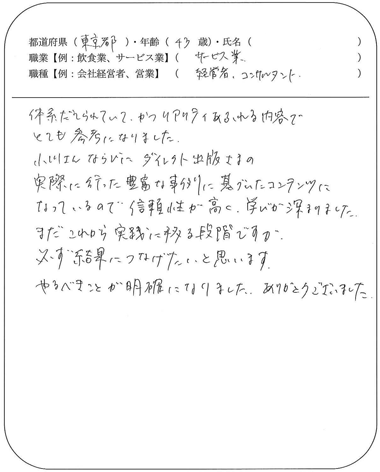 都道府県（ 東京都 ）・年齢（ 43 歳）・氏名（ ）
職業【例：飲食業、サービス業】（ サービス業、 ）
職種【例：会社経営者、営業】（ 経営者、コンサルタント. ）
体系だてられていて、かつリアリティあふれる内容で
とても参考になりました.
小川さんならびに ダイレクト出版さまの
実際に行った豊富な事例に基づいたコンテンツに
なっているので信頼性が高く、学びが深まりました.
まだこれから実践に移る段階ですが、
必ず結果につなげたいと思います.
やるべきことが明確になりました. ありがとうございました.